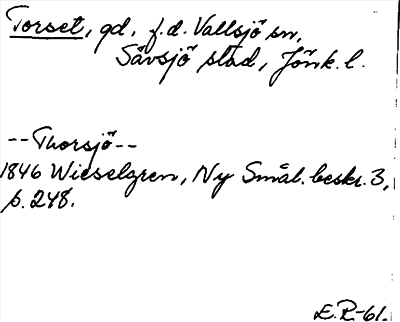 Torset, gd, f.d. Vallsjö sn,
Sävsjö stad, Jönk. l.
--Thorsjö--
1846 Wieselgren, Ny Smål. beskr. 3,
s. 248.
E.R-61.